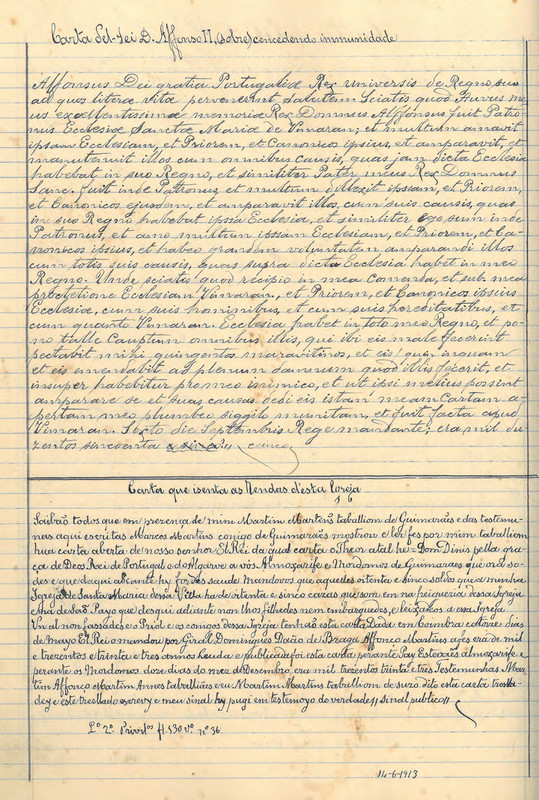 Carta del-Rei D. Affonso II, (sobre) concedendo immunidade
Affonsus Dei gratia Portugaliæ Rex universis de Regno suo
ad quos literæ vitæ pervenerint salutem: Sciatis quod Avus me
us excellentissimæ memoriæ Rex Domnus Alffonsus fuit Patro
nus Ecclesiæ Sanctæ Mariæ de Vimaran; et multum amavit
ipsam Ecclesiam, et Priorem, et Canonicos ipsius, et amparavit, et
manutenuit illos cum omnibus causis, quas jam dicta Ecclesia
habebat in suo Regno, et similiter Pater meus Rex Domnus
Sanci. fuit inde Patronus et multum dilexit ipsam, et Priorem,
et Canonicos ejusdem, et amparavit illos, cum suis causis, quas
in suo Regno, habebat ipssa Ecclesia, et similiter ego sum inde
Patronus, et amo multum ipssam Ecclesiam, et Priorem, et Ca-
nonicos ipsius, et habeo grandem voluntatem amparandi illos
cum totis suis causis, quas supra dicta Ecclesia, habet in meo
Regno. Unde sciatis quod recipio in mea Comenda, et sub mea
protectione Ecclesiam Vimaran., et Priorem, et Canonicos ipsius
Ecclesiæ, cum suis hominibus, et cum suis poreditatibus, et
cum quanto Vimaran. Ecclesia habet in toto meo Regno, et po-
no talle Cauptum omnibus illis, qui ibi eis male fecerint
pectabit mihi quingentos maravitinos, et eis
et eis emendabit ad plenum damnum quod illis fecerit, et
insuper habebitur pro meo inimico, et ut ipsi melius possint
amparare se et suas causas dedi eis istam meam Cartam a-
pertam meo plumbeo siggilo munitam, et fuit facta apud
Vimaran. Sexto die Septembris Rege mandante; era mil du
zentos sincoenta cinco
Carta que isenta as Rendas d'esta Igreja
Saibão todos que em prezença de mim Martim Martins taballiom de Guimarães e das testemu-
nas aqui escritas Marcos Martins conigo de Guimarães mostrou e ler fes por mim taballiom
hua carta aberta de nosso senhor El Rei da qual carta o Theor atal he = Dom Dinis pella gra
ça de Deos Rei de Portugal e do Algarve a vós Almoxarife e Mordomos de Guimaraes que ora so
des e que daqui adiante hy fordes saude Mandovos que aquedes oitenta e sinco soldos que a minha
Igreja de Santa Maria dessa Villa ha de oitenta e sinco cazas que som em na freiguezia dessa Igreja
e ha de São Payo que desqui adiante non lhos filhedes nem embarguedes, e leixades a essa Igreja
Un al non fassades e o Priol e os conigos dessa Igreja tenhão esta carta Dada em Coimbra catorze dias
de mayo El Rei o mandou por Giral Domingos Daão de Braga Affonço Martins a fes era de mil
e trezentos e trinta e tres annos Leuda e publicada foi esta carta perante Pay Esteváes almoxarife e
perante os Mordomos doze dias do mez de Desembro era mil trezentos trinta e tres Testemunhas Mar
tim Affonço Martim Annes taballiães eu Martim Martins taballiom de suzo dito esta carta tresla-
dey e este tresllado screvy e meu sinal hy pugi em testemoyo de verdade // sinal publico //
Lº 2º Privilºs fl. 530 vº nº 36.
14-6-1913